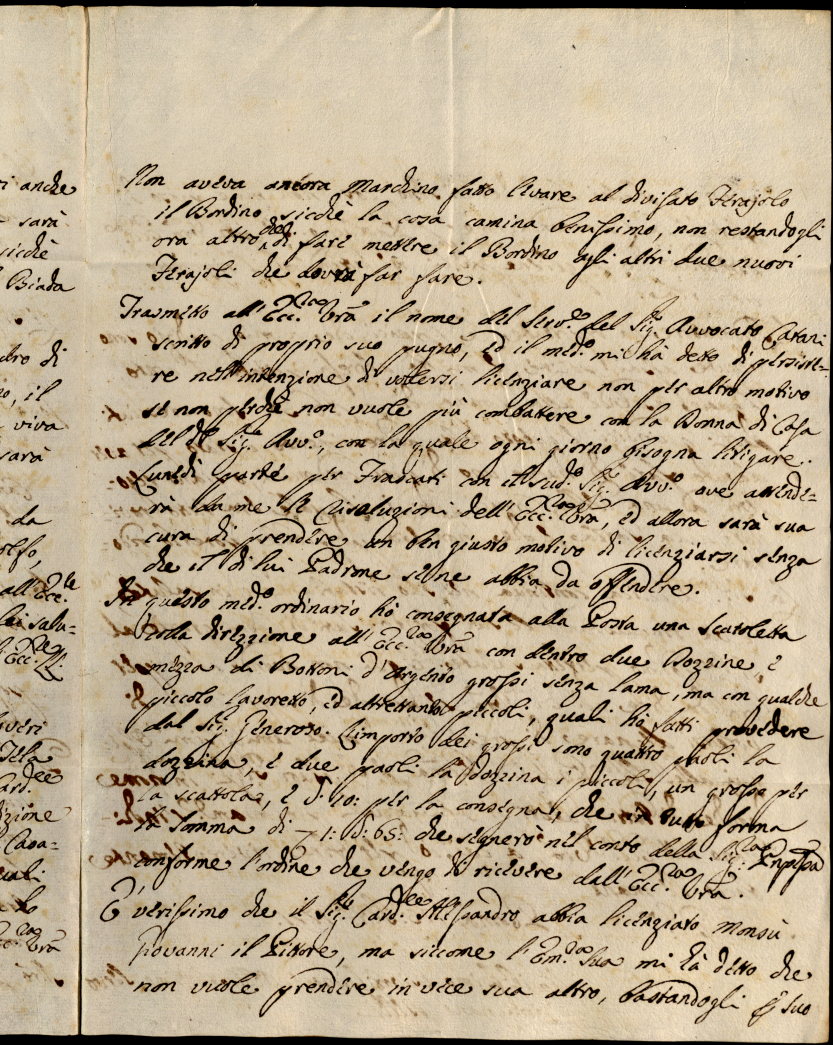 ri anche
sarà
sicchè
Biada
dro di
no, il
viva
sarà
da
all'Ecc.
lei salu=
Ecc. V:
averi
Tela
Card.
dizione
Casa=
quali
lo
Ecc.za Vrã
Non aveva ancora Marchino fatto levare al divisato Ferajolo
il Bordino sicchè la cosa camina benissimo, non restandogli
ora altro che di fare mettere il Bordino agli altri due nuovi
Ferajoli che dovrà far fare.
Trasmetto all'Ecc.za Vrã il nome del Serv.re del Sig.r Avvocato Catani
scritto di proprio suo pugno, ed il med.o mi hà detto di persiste=
re nell'intenzione di volersi licenziare non per altro motivo
se non perchè non vuole più combattere con la Donna di Casa
del dº Sig.r Avv.o, con la quale ogni giorno bisogna litigare.
Lunedi parte per Frascati con il sud.o Sig.r Avv.o ove attende=
rà da me le risoluzioni dell'Ecc.za Vrã, ed allora sarà sua
cura di prendere un ben giusto motivo di licenziarsi senza
che il di lui Padrone se ne abbia da offendere.
In questo med.o ordinario hò consegnata alla Posta una scatoletta
colla direzzione all'Ecc.za Vrã con dentro due dozzine, e
mezza di Bottoni d'argento grossi senza lama, ma con qualche
piccolo lavoretto, ed altrettanti piccoli, quali hà fatti provedere
dal Sig.r Generoso. L'importo dei grossi sono quattro paoli la
dozzina, e due paoli la dozzina i piccoli, un grosso per
la scattola, e d: 10: per la consegna, che in tutto forma
la somma di 1: d: 65: che segnerò nel conto della Sig.ra Prñpssa
conforme l'ordine che vengo di ricevere dall'Ecc.za Vrã.
E' verissimo che il Sig.r Card.le Alessandro abbia licenziato Monsù
Giovanni il Pittore, ma siccome l'Em.za Sua mi hà detto che
non vuole prendere in vece sua altro, bastandogli p suo